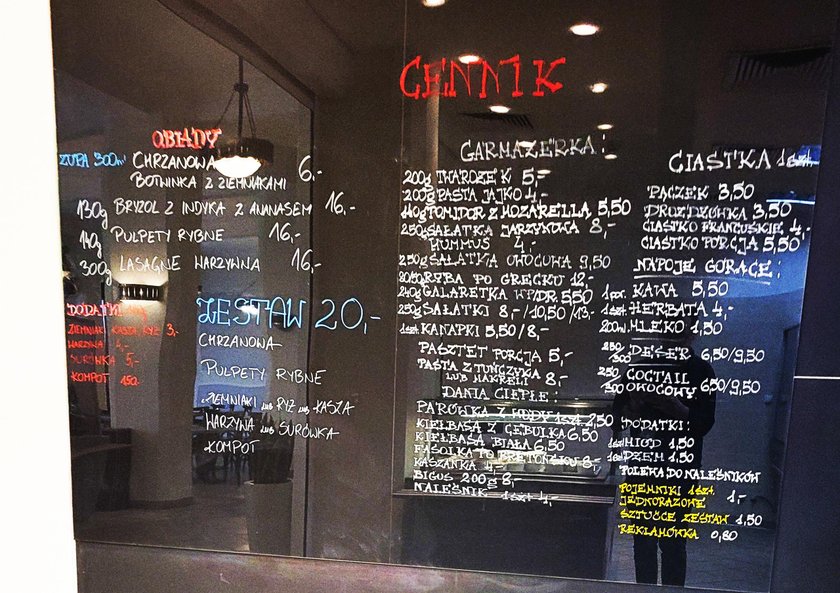 CENNIK
OBIADY
ZUPA 300ml CHRZANOWA 6.-
BOTWINKA Z ZIEMNIAKAMI
130g BRYZOL Z INDYKA Z ANANASEM 16.-
140g PULPETY RYBNE 16.-
300g LASAGNE WARZYWNA 16,-
DODATKI
ZIEMNIAKI KASZA RYŻ 3,-
WARZYWA 4,-
SURÓWKA 5,-
KOMPOT 1,50.-
ZESTAW 20,-
CHRZANOWA
PULPETY RYBNE
ZIEMNIAKI LUB RYŻ LUB KASZA
WARZYWA LUB SURÓWKA
KOMPOT
GARMAŻERKA:
200g TWAROŻEK 5,-
200g PASTA JAJKO 4,-
140g POMIDOR Z MOZARELLĄ 5,50
250g SAŁATKA JARZYNOWA 8,-
HUMMUS 4,-
250g SAŁATKA OWOCOWA 9,50
RYBA PO GRECKU 12,-
240g GALARETKA WP/DR. 5,50
250g SAŁATKI 8,-/10,50/13,-
1szt KANAPKI 5,50/8,-
PASZTET PORCJA 5,-
PASTA Z TUŃCZYKA
LUB MAKRELI 8,-
DANIA CIEPŁE:
PARÓWKA Z WODY 1szt 2,50
KIEŁBASA Z CEBULKĄ 6,50
KIEŁBASA BIAŁA 6,50
FASOLKA PO BRETOŃSKU 8,-
KASZANKA 4,-
BIGOS 200g 8,-
NALEŚNIK 1szt 4,-
CIASTKA 1szt.
PĄCZEK 3,50
DROŻDŻÓWKA 3,50
CIASTKO FRANCUSKIE 4,-
CIASTKO PORCJA 5,50
NAPOJE GORĄCE:
1por. KAWA 5,50
1szt HERBATA 4,-
200ml MLEKO 1,50
250/300 DESER 6,50/9,50
250/300 COCTAIL
OWOCOWY 6,50/9,50
DODATKI:
1szt MIÓD 1,50
1szt DŻEM 1,50
POLEWA DO NALEŚNIKÓW
POJEMNIKI 1szt.
JEDNORAZOWE 1,-
SZTUĆCE ZESTAW 1,50
REKLAMÓWKA 0,80